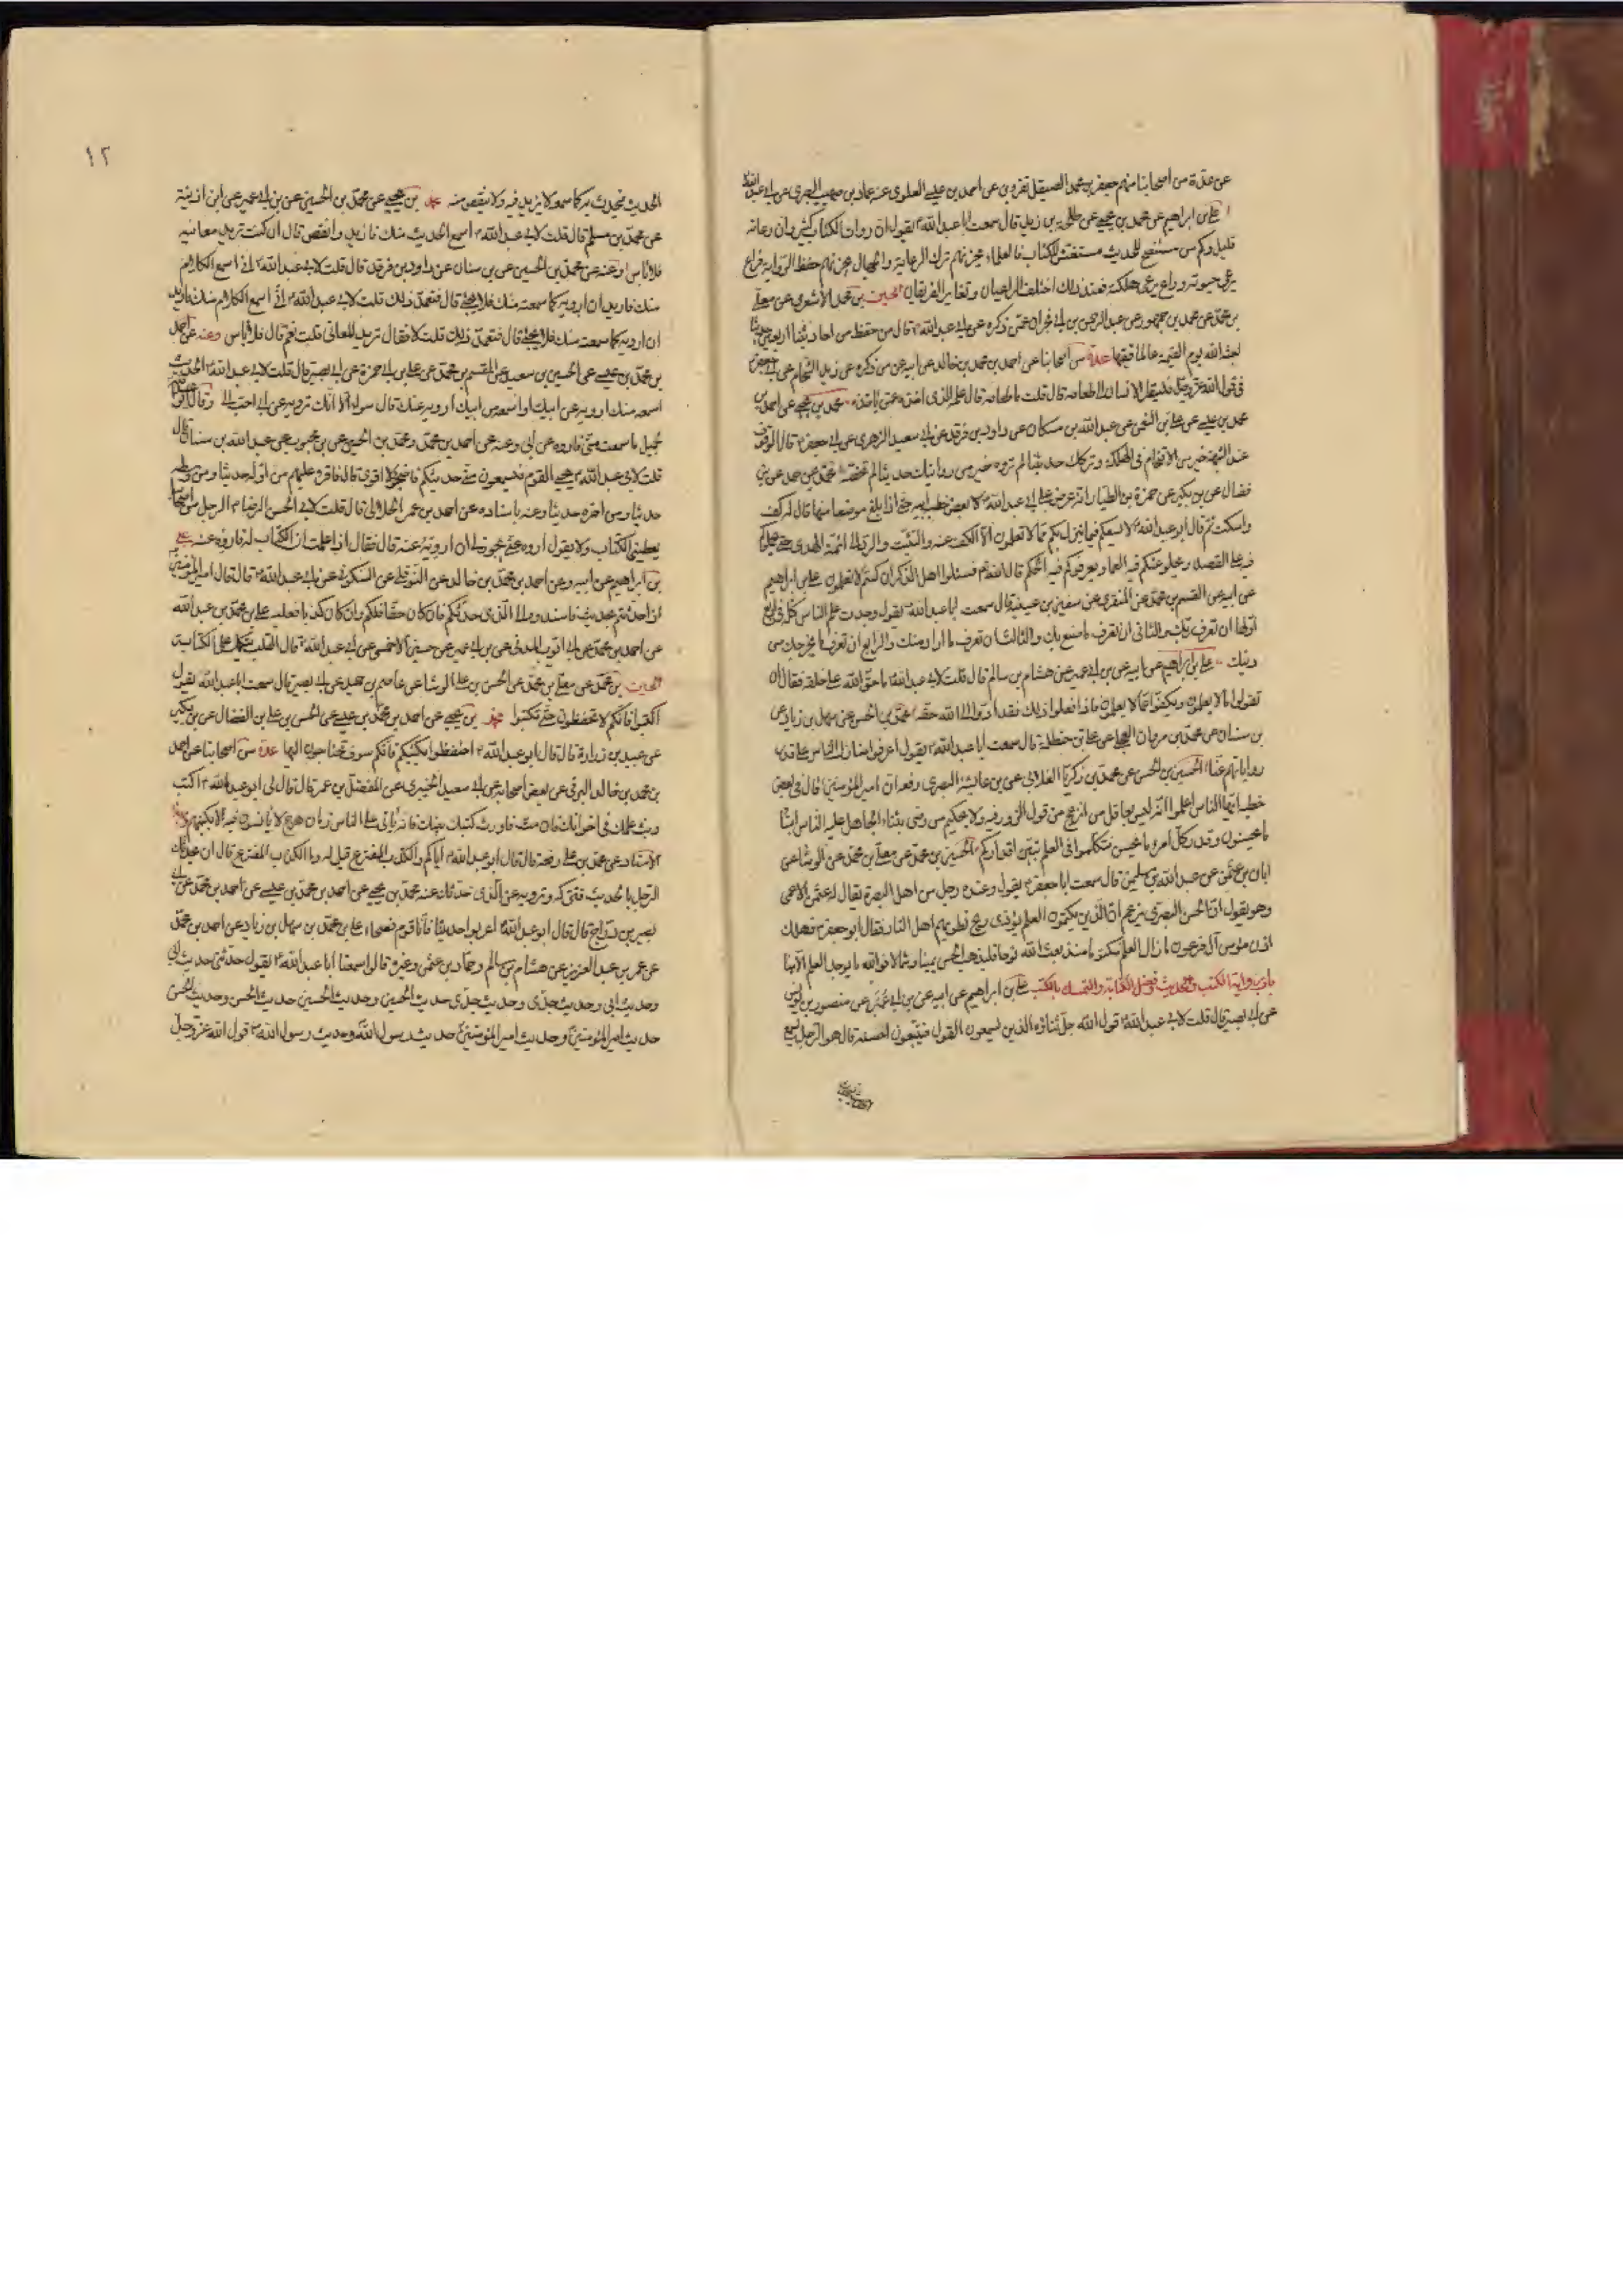 عن عدة من اصحابنا منهم جعفر بن محمد الصيقل بقزوين عن احمد بن عيسى العلوى عن عباد بن صهيب البصرى عن ابى عبد الله
على بن ابراهيم عن محمد بن يحيى عن طلحة بن زيد قال سمعت ابا عبد الله ع يقول ان رواة الكتاب كثير وان رعاته
قليل وكم من مستنصح للحديث مستغش للكتاب فالعلماء يحزنهم ترك الرعاية والجهال يحزنهم حفظ الرواية فراع
يرعى حيوته وراع يرعى هلكته فعند ذلك اختلف الراعيان وتغاير الفريقان الحسين بن محمد الاشعرى عن معلى
بن محمد عن محمد بن جمهور عن عبد الرحمن بن ابى نجران عمن ذكره عن ابى عبد الله ع قال من حفظ من احاديثنا اربعين حديثا
بعثه الله يوم القيمة عالما فقيها عدة من اصحابنا عن احمد بن محمد بن خالد عن ابيه عمن ذكره عن زيد الشحام عن ابى جعفر
فى قول الله عز وجل فلينظر الانسان الى طعامه قال قلت ما طعامه قال علمه الذى اخذه عمن ياخذه محمد بن يحيى عن احمد بن
محمد بن عيسى عن على بن النعمن عن عبد الله بن مسكان عن داود بن فرقد عن ابى سعيد الزهرى عن ابى جعفر ع قال الوقوف
عند الشبهة خير من الاقتحام فى الهلكة وتركك حديثا لم تروه خير من روايتك حديثا لم تحصه محمد عن احمد عن بن
فضال عن بن بكير عن حمزة بن الطيار انه عرض على ابى عبد الله ع بعض خطب ابيه حتى اذا بلغ موضعا منها قال له كف
واسكت ثم قال ابو عبد الله ع لا يسعكم فيما ينزل بكم مما لا تعلمون الا الكف عنه والتثبت والرد الى ائمة الهدى حتى يحملوكم
فيه على القصد ويجلوا عنكم فيه العما ويعرفوكم فيه الحق قال الله فسئلوا اهل الذكر ان كنتم لا تعلمون على بن ابراهيم
عن ابيه عن القسم بن محمد عن المنقرى عن سفين بن عيينة قال سمعت ابا عبد الله ع يقول وجدت علم الناس كله فى اربع
اولها ان تعرف ربك والثانى ان تعرف ما صنع بك والثالث ان تعرف ما اراد منك والرابع ان تعرف ما يخرجك من
دينك على بن ابراهيم عن ابيه عن بن ابى عمير عن هشام بن سالم قال قلت لابى عبد الله ع ما حق الله على خلقه فقال ان
يقولوا ما يعلمون ويكفوا عما لا يعلمون فاذا فعلوا ذلك فقد ادوا الى الله حقه محمد بن الحسن عن سهل بن زياد عن
بن سنان عن محمد بن مروان العجلى عن على بن حنظلة قال سمعت ابا عبد الله ع يقول اعرفوا منازل الناس على قدر
رواياتهم عنا الحسين بن الحسن عن محمد بن زكريا الغلابى عن بن عائشة البصرى رفعه ان امير المؤمنين ع قال فى بعض
خطبه ايها الناس اعلموا انه ليس بعاقل من انزعج من قول الزور فيه ولا بحكيم من رضى بثناء الجاهل عليه الناس ابناء
ما يحسنون وقدر كل امرء ما يحسن فتكلموا فى العلم تبين اقداركم الحسين بن محمد عن معلى بن محمد عن الوشا عن
ابان بن عثمن عن عبد الله بن سليمن قال سمعت ابا جعفر ع يقول وعنده رجل من اهل البصرة يقال له عثمن الاعمى
وهو يقول ان الحسن البصرى يزعم ان الذين يكتمون العلم يؤذى ريح بطونهم اهل النار فقال ابو جعفر ع فهلك
اذن مؤمن آل فرعون ما زال العلم مكتوما منذ بعث الله نوحا فليذهب الحسن يمينا وشمالا فوالله ما يوجد العلم الا ههنا
باب رواية الكتب والحديث وفضل الكتابة والتمسك بالكتب على بن ابراهيم عن ابيه عن بن ابى عمير عن منصور بن يونس
عن ابى بصير قال قلت لابى عبد الله ع قول الله جل ثناؤه الذين يسمعون القول فيتبعون احسنه قال هو الرجل يسمع
١٢
الحديث فيحدث به كما سمعه لا يزيد فيه ولا ينقص منه محمد بن يحيى عن محمد بن الحسين عن بن ابى عمير عن ابن اذينة
عن محمد بن مسلم قال قلت لابى عبد الله ع اسمع الحديث منك فازيد وانقص قال ان كنت تريد معانيه
فلا باس وعنه عن محمد بن الحسين عن بن سنان عن داود بن فرقد قال قلت لابى عبد الله ع انى اسمع الكلام
منك فاريد ان ارويه كما سمعته منك فلا يجئ قال فتعمد ذلك قلت لابى عبد الله ع انى اسمع الكلام منك فاريد
ان ارويه كما سمعته منك فلا يجئ قال فتعمد ذلك قلت لا فقال تريد المعانى قلت نعم قال فلا باس وعنه عن احمد
بن محمد بن عيسى عن الحسين بن سعيد عن القسم بن محمد عن على بن ابى حمزة عن ابى بصير قال قلت لابى عبد الله ع الحديث
اسمعه منك ارويه عن ابيك او اسمعه من ابيك ارويه عنك قال سواء الا انك ترويه عن ابى احب الى وقال ابو عبد الله
لجميل ما سمعت منى فاروه عن ابى وعنه عن احمد بن محمد ومحمد بن الحسين عن بن محبوب عن عبد الله بن سنان قال
قلت لابى عبد الله ع يجيئنى القوم فيسمعون منى حديثكم فاضجر ولا اقوى قال فاقرء عليهم من اوله حديثا ومن وسطه
حديثا ومن اخره حديثا وعنه باسناده عن احمد بن عمر الحلال قال قلت لابى الحسن الرضا ع الرجل من اصحابنا
يعطينى الكتاب ولا يقول اروه عنى يجوز لى ان ارويه عنه قال فقال اذا علمت ان الكتاب له فاروه عنه على
بن ابراهيم عن ابيه وعن احمد بن محمد بن خالد عن النوفلى عن السكونى عن ابى عبد الله ع قال قال امير المؤمنين
اذا حدثتم بحديث فاسندوه الى الذى حدثكم فان كان حقا فلكم وان كان كذبا فعليه على بن محمد بن عبد الله
عن احمد بن محمد عن ابى ايوب المدنى عن بن ابى عمير عن حسين الاحمسى عن ابى عبد الله ع قال القلب يتكل على الكتابة
الحسين بن محمد عن معلى بن محمد عن الحسن بن على الوشا عن عاصم بن حميد عن ابى بصير قال سمعت ابا عبد الله يقول
اكتبوا فانكم لا تحفظون حتى تكتبوا محمد بن يحيى عن احمد بن محمد بن عيسى عن الحسن بن على بن الفضال عن بن بكير
عن عبيد بن زرارة قال قال ابو عبد الله ع احتفظوا بكتبكم فانكم سوف تحتاجون اليها عدة من اصحابنا عن احمد
بن محمد بن خالد البرقى عن بعض اصحابه عن ابى سعيد الخيبرى عن المفضل بن عمر قال قال لى ابو عبد الله ع اكتب
وبث علمك فى اخوانك فان مت فاورث كتبك بنيك فانه ياتى على الناس زمان هرج لا يانسون فيه الا بكتبهم
الاسناد عن محمد بن على رفعه قال قال ابو عبد الله ع اياكم والكذب المفترع قيل له وما الكذب المفترع قال ان يحدثك
الرجل بالحديث فتتركه وترويه عن الذى حدثك عنه محمد بن يحيى عن احمد بن محمد بن عيسى عن احمد بن محمد بن ابى
نصر عن جميل بن دراج قال قال ابو عبد الله ع اعربوا حديثنا فانا قوم فصحاء على بن محمد عن سهل بن زياد عن احمد بن محمد
عن عمر بن عبد العزيز عن هشام بن سالم وحماد بن عثمن وغيره قالوا سمعنا ابا عبد الله ع يقول حديثى حديث ابى
وحديث ابى حديث جدى وحديث جدى حديث الحسين وحديث الحسين حديث الحسن وحديث الحسن
حديث امير المؤمنين وحديث امير المؤمنين حديث رسول الله وحديث رسول الله ص قول الله عز وجل